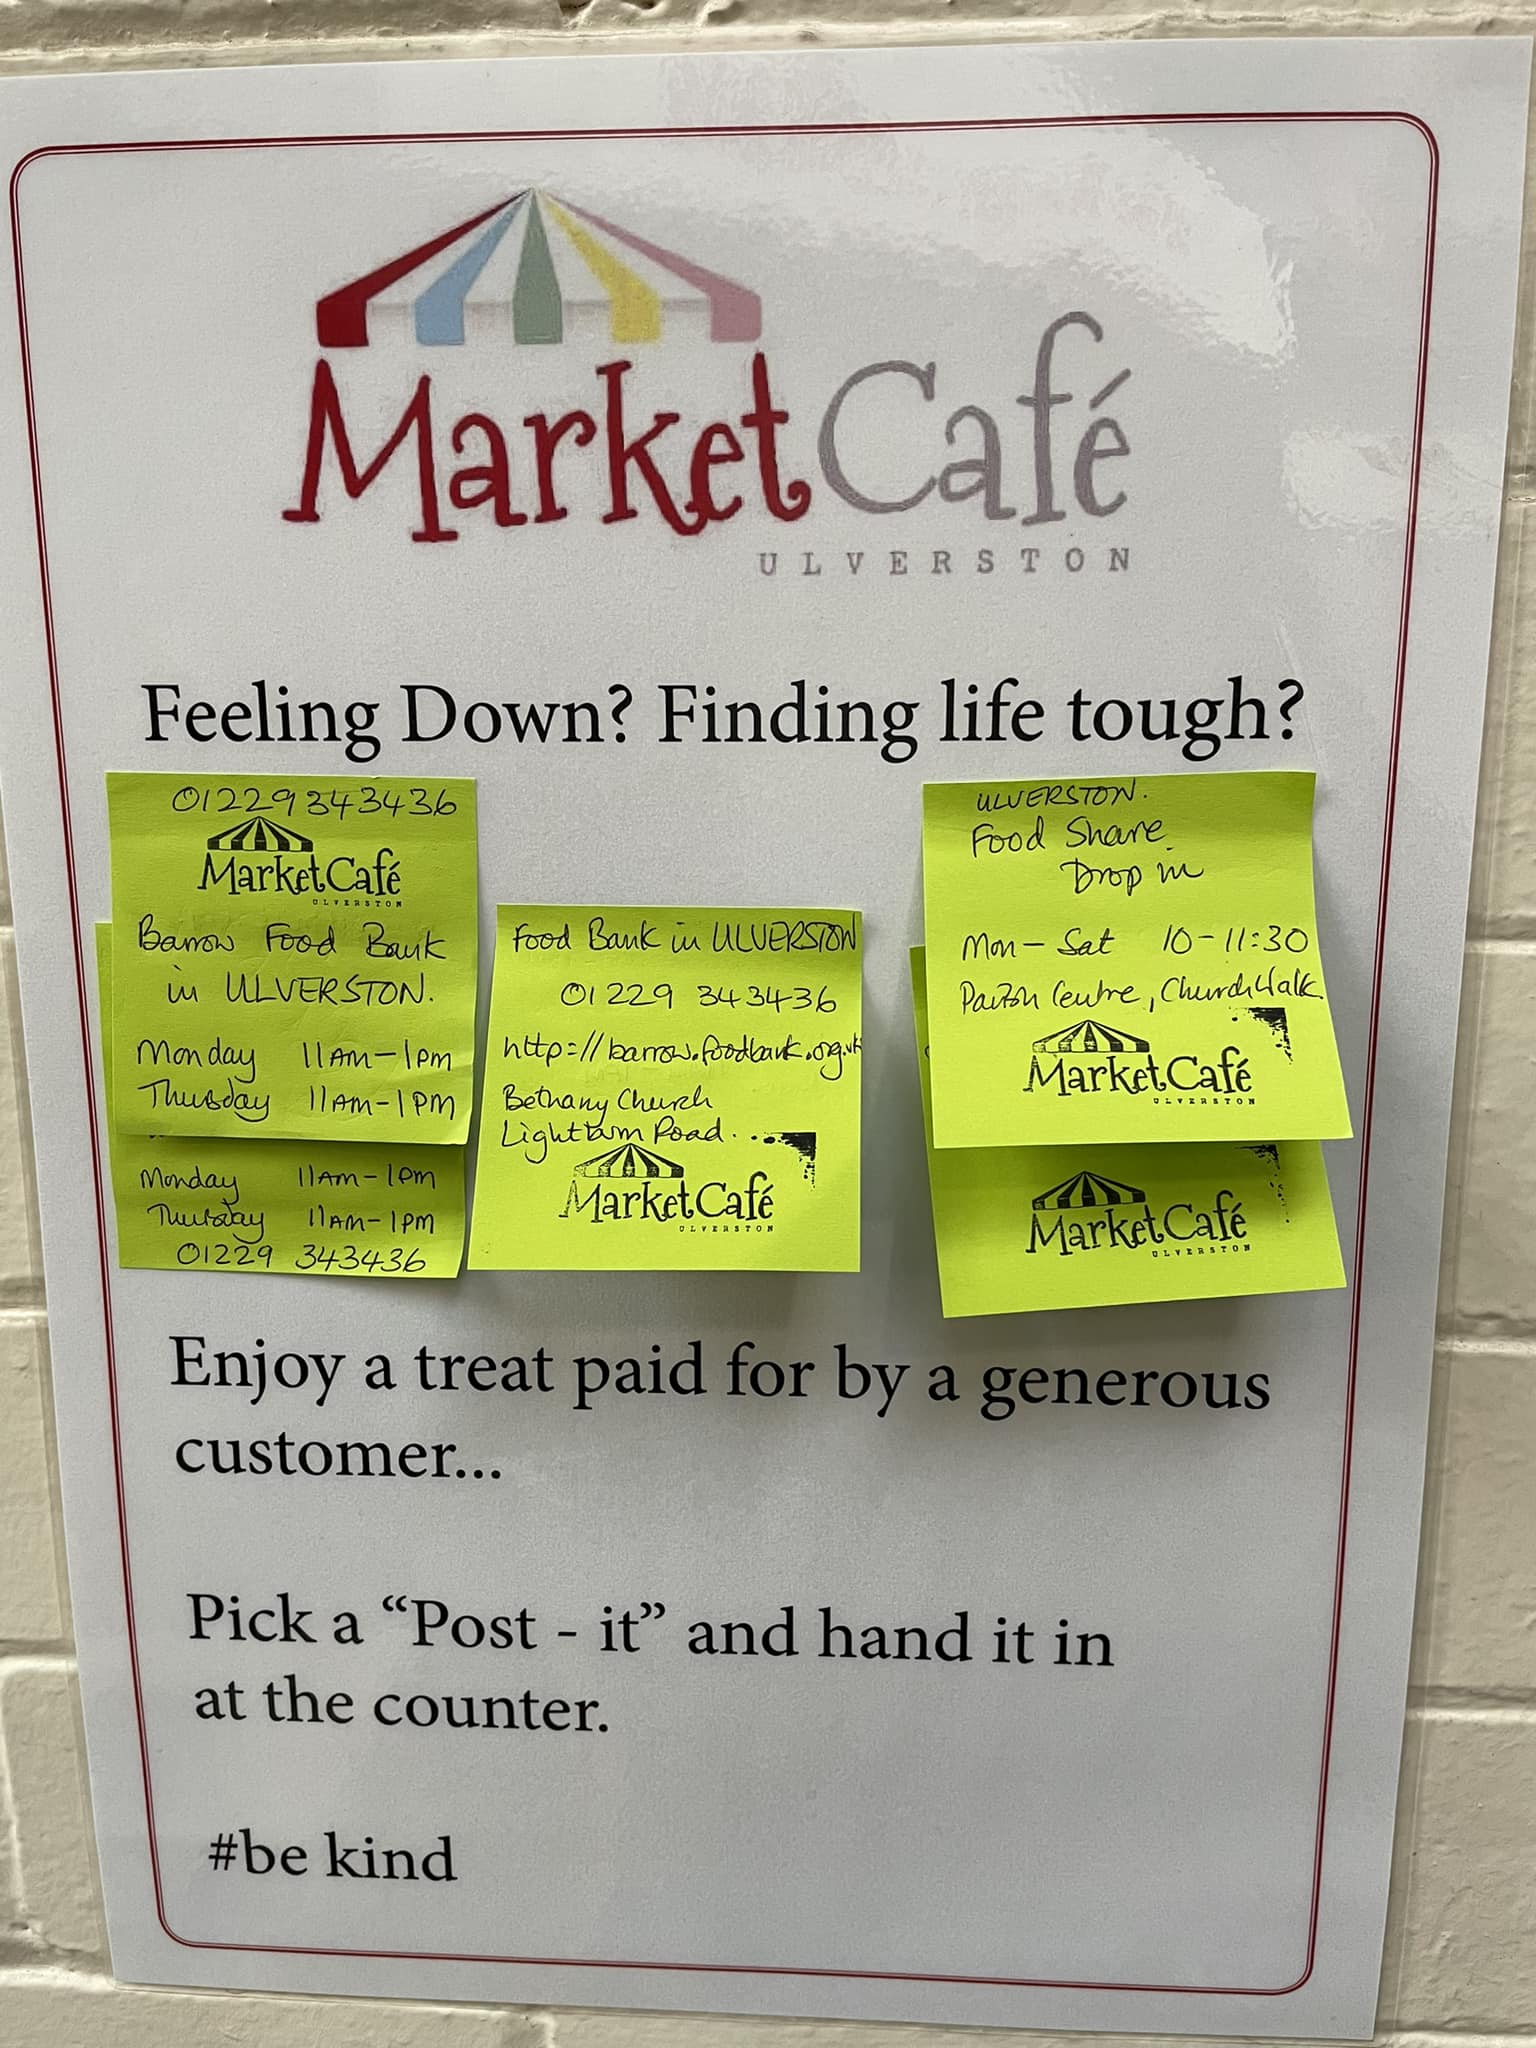 Market Café
ULVERSTON
Feeling Down? Finding life tough?
01229 343436
Market Café
ULVERSTON
Barrow Food Bank
in ULVERSTON.
Monday 11AM-1PM
Thursday 11AM-1PM
Monday 11AM-1PM
Thursday 11AM-1PM
01229 343436
Food Bank in ULVERSTON
01229 343436
http://barrow.foodbank.org.uk
Bethany Church
Lightburn Road.
Market Café
ULVERSTON
ULVERSTON.
Food Share
Drop in
Mon-Sat 10-11:30
Centre, Church Walk.
Market Café
ULVERSTON
Market Café
ULVERSTON
Enjoy a treat paid for by a generous
customer...
Pick a “Post - it” and hand it in
at the counter.
#be kind